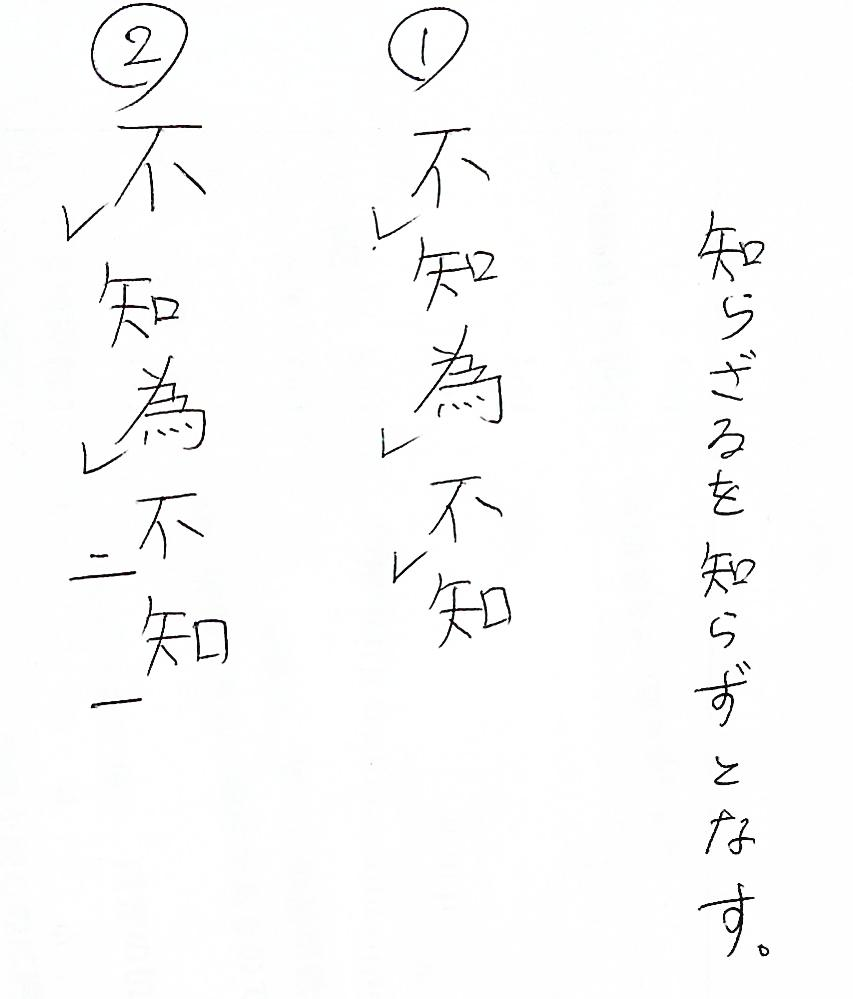 知らざるを知らずとなす。
① 不レ知為レ不レ知
② 不レ知為レ不二知一